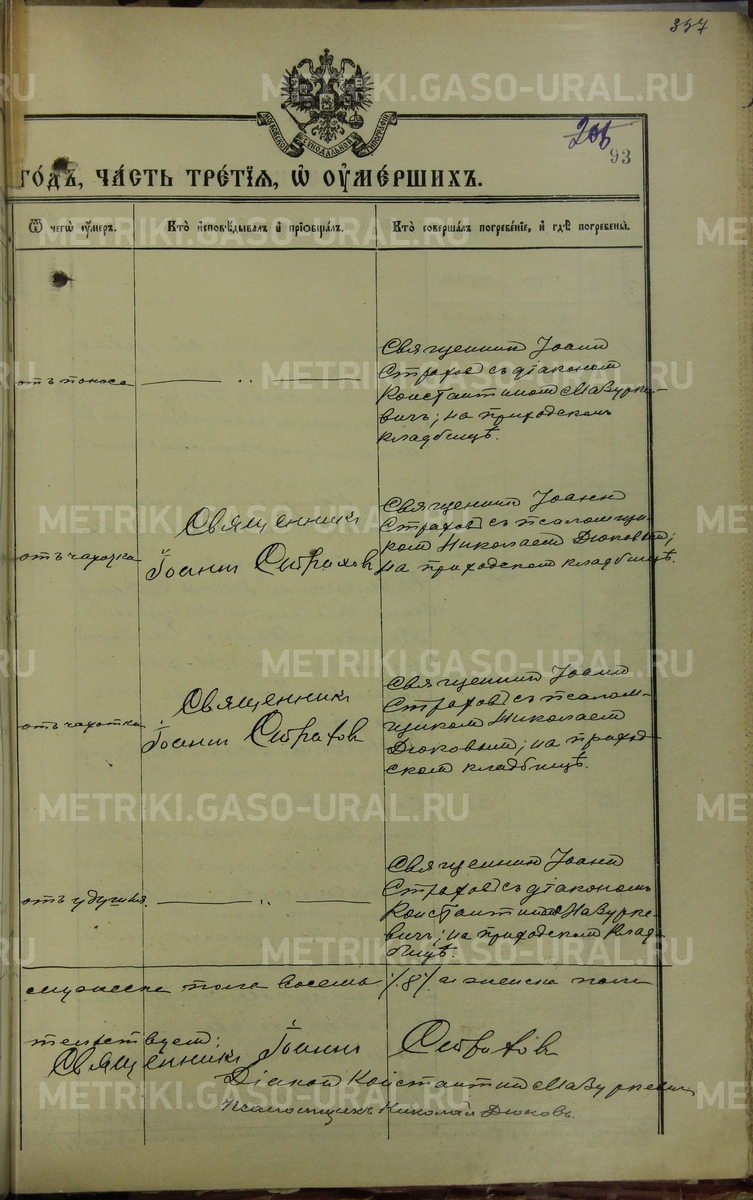 337
МОСКОВСКОЙ СѴНОДАЛЬНОЙ ТИПОГРАФІИ
206
93
годъ, часть третїѧ, ѡ оумершихъ.
Ѿ чегѡ оумеръ.
Кто исповѣдывалъ и прїобщалъ.
Кто совершалъ погребенїе, и гдѣ погребены.
отъ поноса
Священникъ Іоаннъ
Страховъ съ діакономъ
Константиномъ Мазурке-
вичъ; на приходскомъ
кладбищѣ.
отъ чахотка
Священникъ
Іоаннъ Страховъ
Священникъ Іоаннъ
Страховъ съ псаломщи-
комъ Николаемъ Дюковымъ;
на приходскомъ кладбищѣ.
отъ чахотка
Священникъ
Іоаннъ Страховъ
Священникъ Іоаннъ
Страховъ съ псалом-
щикомъ Николаемъ
Дюковымъ; на приход-
скомъ кладбищѣ.
отъ удушья.
Священникъ Іоаннъ
Страховъ съ діакономъ
Константиномъ Мазурке-
вичъ; на приходскомъ клад-
бищѣ.
мужеска пола восемь /.8/. и женска пола
тельствуемъ:
Священникъ Іоаннъ Страховъ
Діаконъ Константинъ Мазуркевичъ
Псаломщикъ Николай Дюковъ.
METRIKI.GASO-URAL.RU